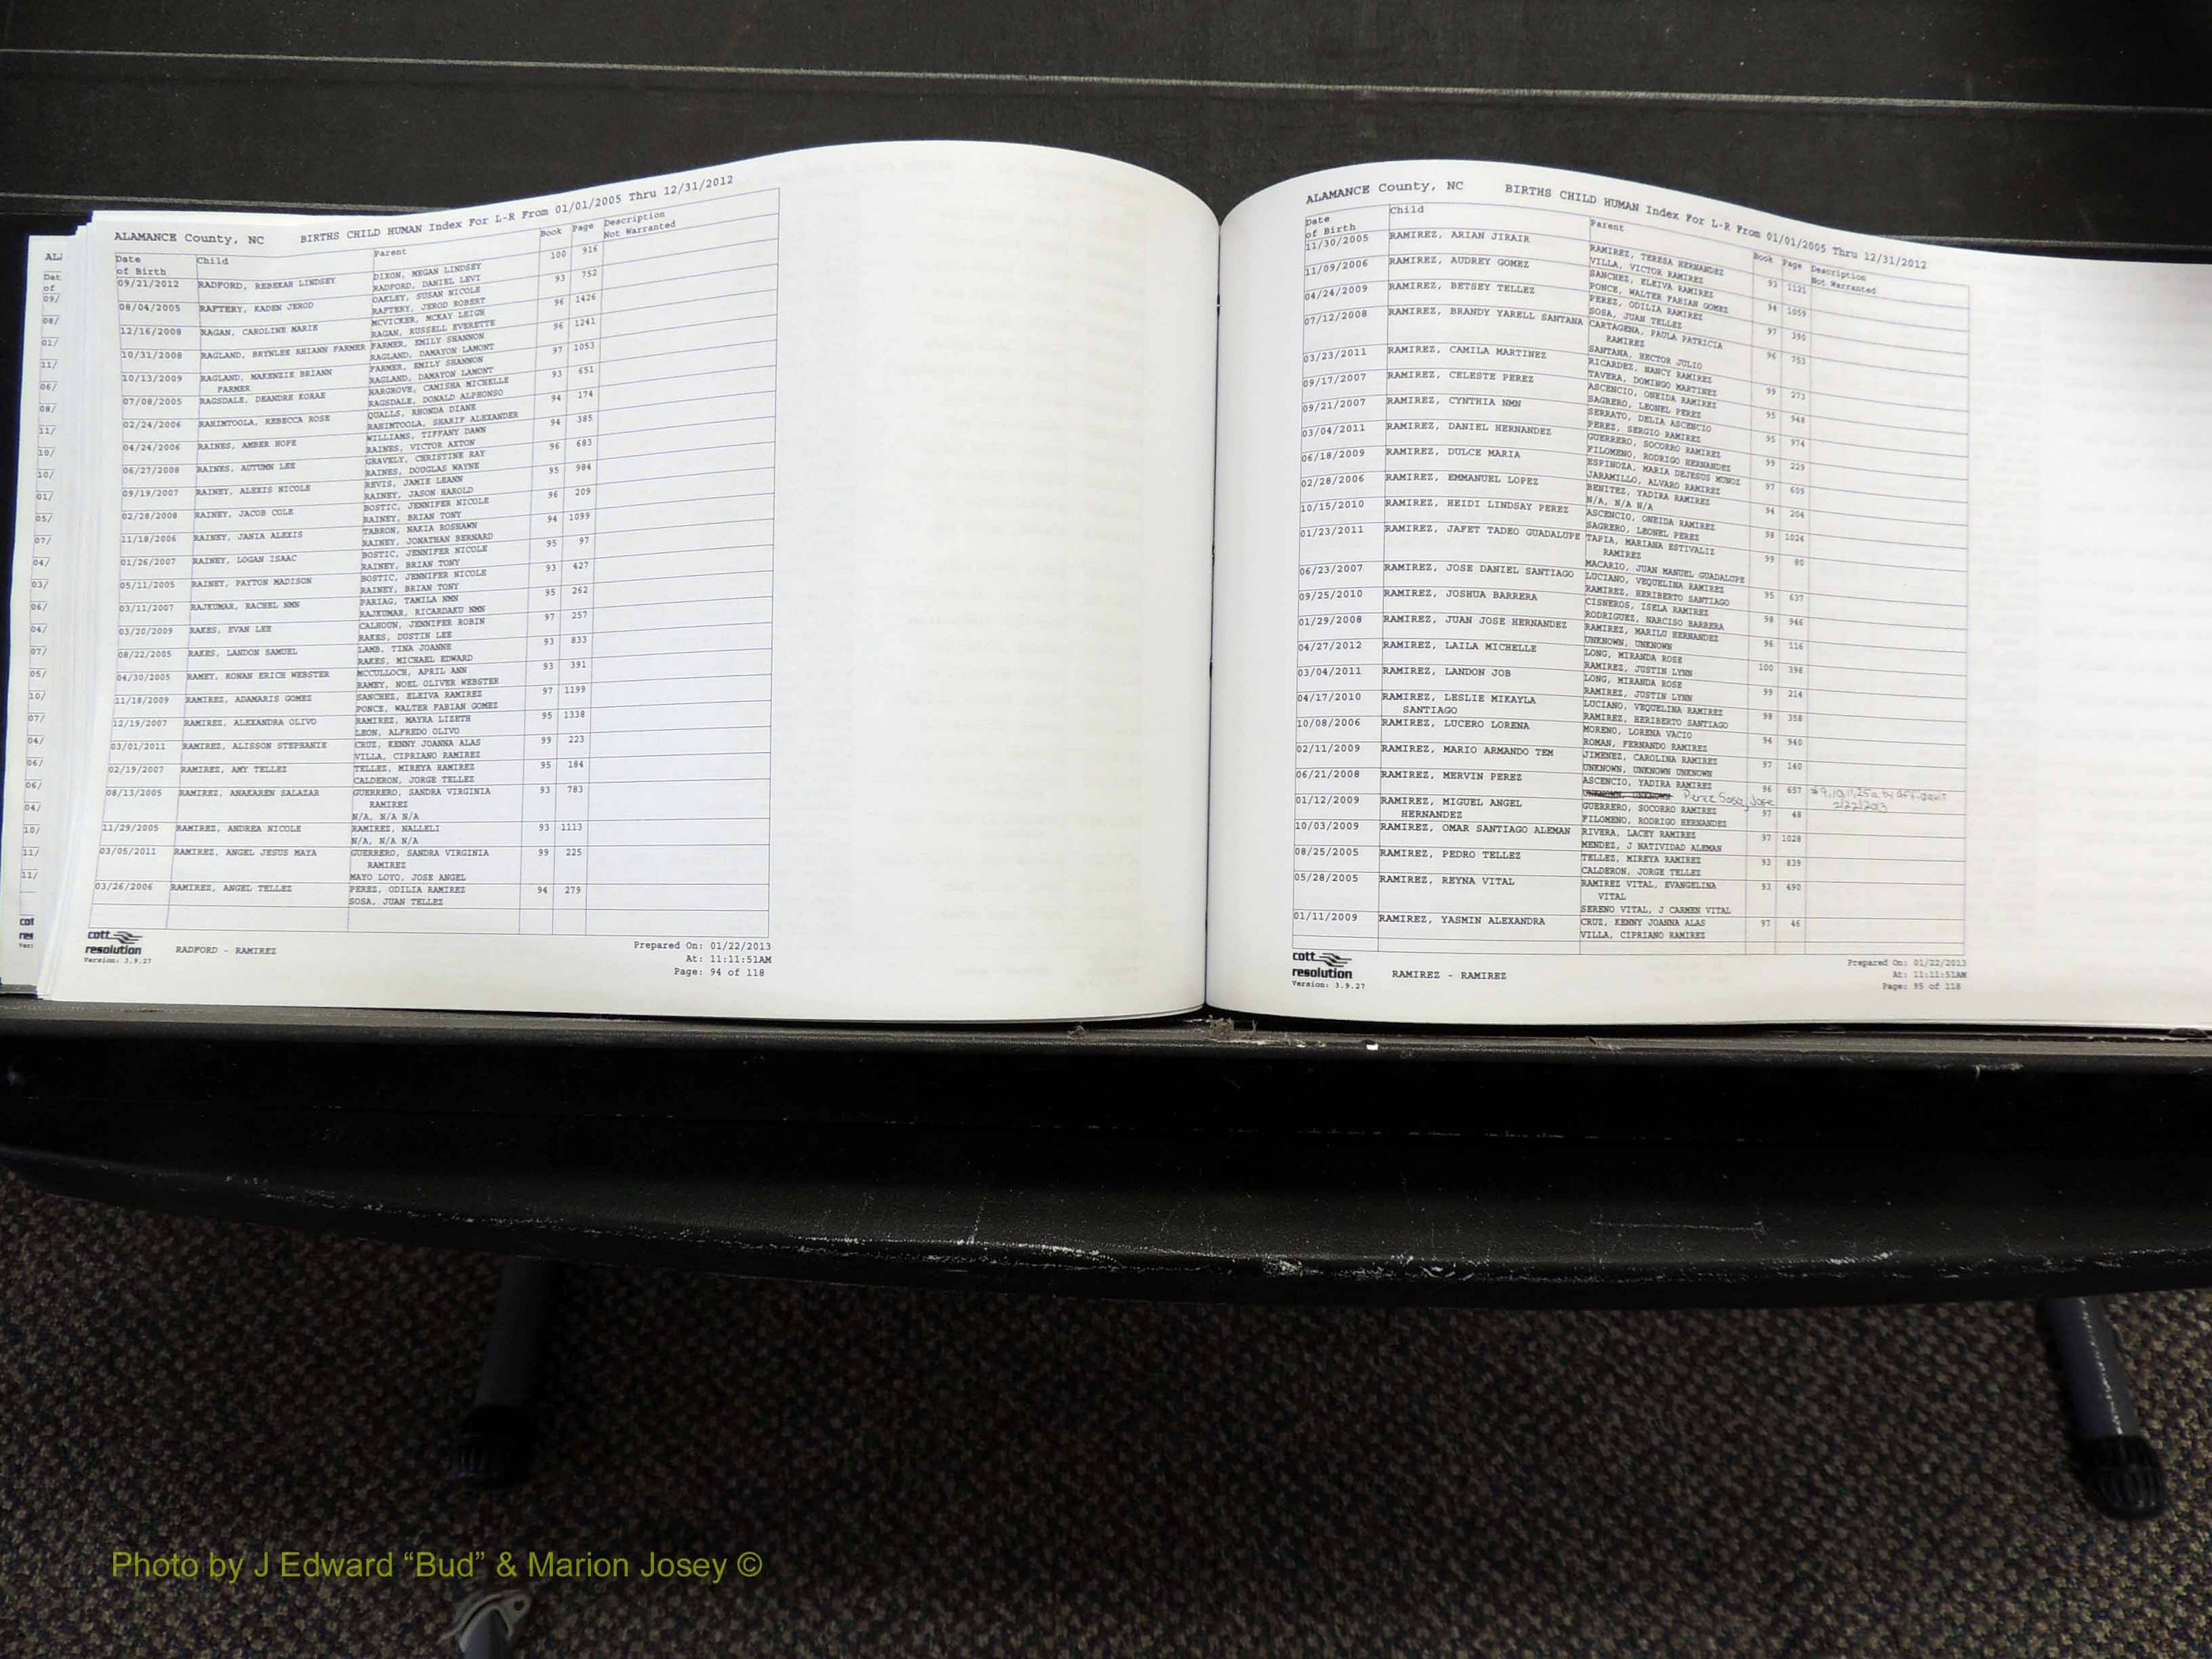 ALAMANCE County, NC BIRTHS CHILD HUMAN Index For L-R From 01/01/2005 Thru 12/31/2012
Date of Birth Child Parent Book Page Description Not Warranted
09/21/2012 RADFORD, REBEKAH LINDSEY DIXON, MEGAN LINDSEY 100 916
RADFORD, DANIEL LEVI
08/04/2005 RAFTERY, KADEN JEROD OAKLEY, SUSAN NICOLE 93 752
RAFTERY, JEROD ROBERT
12/16/2008 RAGAN, CAROLINE MARIE MCVICKER, MCKAY LEIGH 96 1426
RAGAN, RUSSELL EVERETTE
10/31/2008 RAGLAND, BRYNLEE RHIANN FARMER FARMER, EMILY SHANNON 96 1241
RAGLAND, DAMAYON LAMONT
10/13/2009 RAGLAND, MAKENZIE BRIANN FARMER, EMILY SHANNON 97 1053
FARMER RAGLAND, DAMAYON LAMONT
07/08/2005 RAGSDALE, DEANDRE KORAE HARGROVE, CAMISHA MICHELLE 93 651
RAGSDALE, DONALD ALPHONSO
02/24/2006 RAHIMTOOLA, REBECCA ROSE QUALLS, RHONDA DIANE 94 174
RAHIMTOOLA, SHARIF ALEXANDER
04/24/2006 RAINES, AMBER HOPE WILLIAMS, TIFFANY DAWN 94 385
RAINES, VICTOR AXTON
06/27/2008 RAINES, AUTUMN LEE GRAVELY, CHRISTINE RAY 96 683
RAINES, DOUGLAS WAYNE
09/19/2007 RAINEY, ALEXIS NICOLE REVIS, JAMIE LEANN 95 984
RAINEY, JASON HAROLD
02/28/2008 RAINEY, JACOB COLE BOSTIC, JENNIFER NICOLE 96 209
RAINEY, BRIAN TONY
11/18/2006 RAINEY, JANIA ALEXIS TABRON, NAKIA ROSHAWN 94 1099
RAINEY, JONATHAN BERNARD
01/26/2007 RAINEY, LOGAN ISAAC BOSTIC, JENNIFER NICOLE 95 97
RAINEY, BRIAN TONY
05/11/2005 RAINEY, PAYTON MADISON BOSTIC, JENNIFER NICOLE 93 427
RAINEY, BRIAN TONY
03/11/2007 RAJKUMAR, RACHEL NMN PARIAG, TAMILA NMN 95 262
RAJKUMAR, RICARDAKU NMN
03/20/2009 RAKES, EVAN LEE CALHOUN, JENNIFER ROBIN 97 257
RAKES, DUSTIN LEE
08/22/2005 RAKES, LANDON SAMUEL LAMB, TINA JOANNE 93 833
RAKES, MICHAEL EDWARD
04/30/2005 RAMEY, RONAN ERICH WEBSTER MCCULLOCH, APRIL ANN 93 391
RAMEY, NOEL OLIVER WEBSTER
11/18/2009 RAMIREZ, ADAMARIS GOMEZ SANCHEZ, ELEIVA RAMIREZ 97 1199
PONCE, WALTER FABIAN GOMEZ
12/19/2007 RAMIREZ, ALEXANDRA OLIVO RAMIREZ, MAYRA LIZETH 95 1338
LEON, ALFREDO OLIVO
03/01/2011 RAMIREZ, ALISSON STEPHANIE CRUZ, KENNY JOANNA ALAS 99 223
VILLA, CIPRIANO RAMIREZ
02/19/2007 RAMIREZ, AMY TELLEZ TELLEZ, MIREYA RAMIREZ 95 184
CALDERON, JORGE TELLEZ
08/13/2005 RAMIREZ, ANAKAREN SALAZAR GUERRERO, SANDRA VIRGINIA 93 783
RAMIREZ
N/A, N/A N/A
11/29/2005 RAMIREZ, ANDREA NICOLE RAMIREZ, NALLELI 93 1113
N/A, N/A N/A
03/05/2011 RAMIREZ, ANGEL JESUS MAYA GUERRERO, SANDRA VIRGINIA 99 225
RAMIREZ
MAYO LOYO, JOSE ANGEL
03/26/2006 RAMIREZ, ANGEL TELLEZ PEREZ, ODILIA RAMIREZ 94 279
SOSA, JUAN TELLEZ
cott
resolution
Version: 3.9.27
RADFORD - RAMIREZ
Prepared On: 01/22/2013
At: 11:11:51AM
Page: 94 of 118
ALAMANCE County, NC BIRTHS CHILD HUMAN Index For L-R From 01/01/2005 Thru 12/31/2012
Date of Birth Child Parent Book Page Description Not Warranted
11/30/2005 RAMIREZ, ARIAN JIRAIR RAMIREZ, TERESA HERNANDEZ 93 1121
VILLA, VICTOR RAMIREZ
11/09/2006 RAMIREZ, AUDREY GOMEZ SANCHEZ, ELEIVA RAMIREZ 94 1059
PONCE, WALTER FABIAN GOMEZ
04/24/2009 RAMIREZ, BETSEY TELLEZ PEREZ, ODILIA RAMIREZ 97 390
SOSA, JUAN TELLEZ
07/12/2008 RAMIREZ, BRANDY YARELL SANTANA CARTAGENA, PAULA PATRICIA 96 753
RAMIREZ
SANTANA, HECTOR JULIO
03/23/2011 RAMIREZ, CAMILA MARTINEZ RICARDEZ, NANCY RAMIREZ 99 273
TAVERA, DOMINGO MARTINEZ
09/17/2007 RAMIREZ, CELESTE PEREZ ASCENCIO, ONEIDA RAMIREZ 95 948
SAGRERO, LEONEL PEREZ
09/21/2007 RAMIREZ, CYNTHIA NMN SERRATO, DELIA ASCENCIO 95 974
PEREZ, SERGIO RAMIREZ
03/04/2011 RAMIREZ, DANIEL HERNANDEZ GUERRERO, SOCORRO RAMIREZ 99 229
FILOMENO, RODRIGO HERNANDEZ
06/18/2009 RAMIREZ, DULCE MARIA ESPINOZA, MARIA DEJESUS MUNOZ 97 605
JARAMILLO, ALVARO RAMIREZ
02/28/2006 RAMIREZ, EMMANUEL LOPEZ BENITEZ, YADIRA RAMIREZ 94 204
N/A, N/A N/A
10/15/2010 RAMIREZ, HEIDI LINDSAY PEREZ ASCENCIO, ONEIDA RAMIREZ 98 1024
SAGRERO, LEONEL PEREZ
01/23/2011 RAMIREZ, JAFET TADEO GUADALUPE TAPIA, MARIANA ESTIVALIZ 99 80
RAMIREZ
MACARIO, JUAN MANUEL GUADALUPE
06/23/2007 RAMIREZ, JOSE DANIEL SANTIAGO LUCIANO, VEQUELINA RAMIREZ 95 637
RAMIREZ, HERIBERTO SANTIAGO
09/25/2010 RAMIREZ, JOSHUA BARRERA CISNEROS, ISELA RAMIREZ 98 946
RODRIGUEZ, NARCISO BARRERA
01/29/2008 RAMIREZ, JUAN JOSE HERNANDEZ RAMIREZ, MARILU HERNANDEZ 96 116
UNKNOWN, UNKNOWN
04/27/2012 RAMIREZ, LAILA MICHELLE LONG, MIRANDA ROSE 100 398
RAMIREZ, JUSTIN LYNN
03/04/2011 RAMIREZ, LANDON JOB LONG, MIRANDA ROSE 99 214
RAMIREZ, JUSTIN LYNN
04/17/2010 RAMIREZ, LESLIE MIKAYLA LUCIANO, VEQUELINA RAMIREZ 98 358
SANTIAGO RAMIREZ, HERIBERTO SANTIAGO
10/08/2006 RAMIREZ, LUCERO LORENA MORENO, LORENA VACIO 94 940
ROMAN, FERNANDO RAMIREZ
02/11/2009 RAMIREZ, MARIO ARMANDO TEM JIMENEZ, CAROLINA RAMIREZ 97 140
UNKNOWN, UNKNOWN UNKNOWN
06/21/2008 RAMIREZ, MERVIN PEREZ ASCENCIO, YADIRA RAMIREZ 96 657
UNKNOWN, UNKNOWN Perez Sosa, Jose 2/22/2013
01/12/2009 RAMIREZ, MIGUEL ANGEL GUERRERO, SOCORRO RAMIREZ 97 48
HERNANDEZ FILOMENO, RODRIGO HERNANDEZ
10/03/2009 RAMIREZ, OMAR SANTIAGO ALEMAN RIVERA, LACEY RAMIREZ 97 1028
MENDEZ, J NATIVIDAD ALEMAN
08/25/2005 RAMIREZ, PEDRO TELLEZ TELLEZ, MIREYA RAMIREZ 93 839
CALDERON, JORGE TELLEZ
05/28/2005 RAMIREZ, REYNA VITAL RAMIREZ VITAL, EVANGELINA 93 490
VITAL
SERENO VITAL, J CARMEN VITAL
01/11/2009 RAMIREZ, YASMIN ALEXANDRA CRUZ, KENNY JOANNA ALAS 97 46
VILLA, CIPRIANO RAMIREZ
cott
resolution
Version: 3.9.27
RAMIREZ - RAMIREZ
Prepared On: 01/22/2013
At: 11:11:51AM
Page: 95 of 118
Photo by J Edward “Bud” & Marion Josey ©